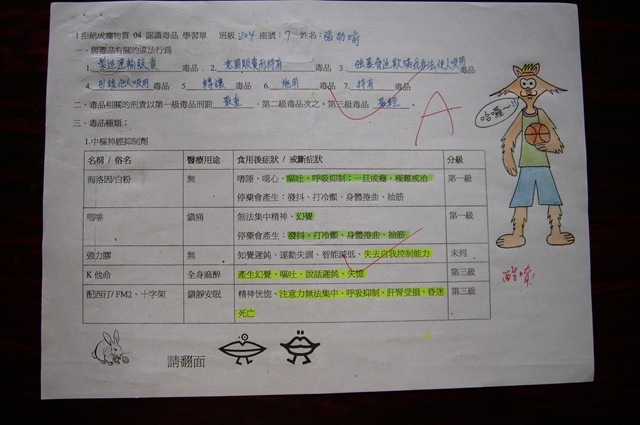 1拒絕成癮物質 04 認識毒品 學習單 班級 204 座號：7 姓名：張勛喻
一、與毒品有關的違法行為
1. 製造運輸販賣 毒品 2. 意圖販賣而持有 毒品 3. 強暴脅迫欺瞞或非法使人吸用
4. 引誘他人吸用 毒品 5. 轉讓 毒品 6. 施用 毒品 7. 持有 毒品
二、毒品相關的刑責以第一級毒品刑罰 最重，第二級毒品次之。第三級毒品 最輕。
A
哈囉～!!
三、毒品種類：
1.中樞神經抑制劑
名稱 / 俗名 醫療用途 食用後症狀 / 戒斷症狀 分級
海洛因/白粉 無 嗜睡、噁心、嘔吐、呼吸抑制；一旦成癮、極難戒治 第一級
停藥會產生：發抖、打冷顫、身體捲曲、抽筋
嗎啡 鎮痛 無法集中精神、幻覺 第一級
停藥會產生：發抖、打冷顫、身體捲曲、抽筋
強力膠 無 知覺遲鈍、運動失調、智能減低、失去自我控制能力 未列
K 他命 全身麻醉 產生幻覺、嘔吐、說話遲鈍、失憶 第三級
配西汀/ FM2、十字架 鎮靜安眠 精神恍惚、注意力無法集中、呼吸抑制、肝腎受損、昏迷 第三級
死亡
請翻面